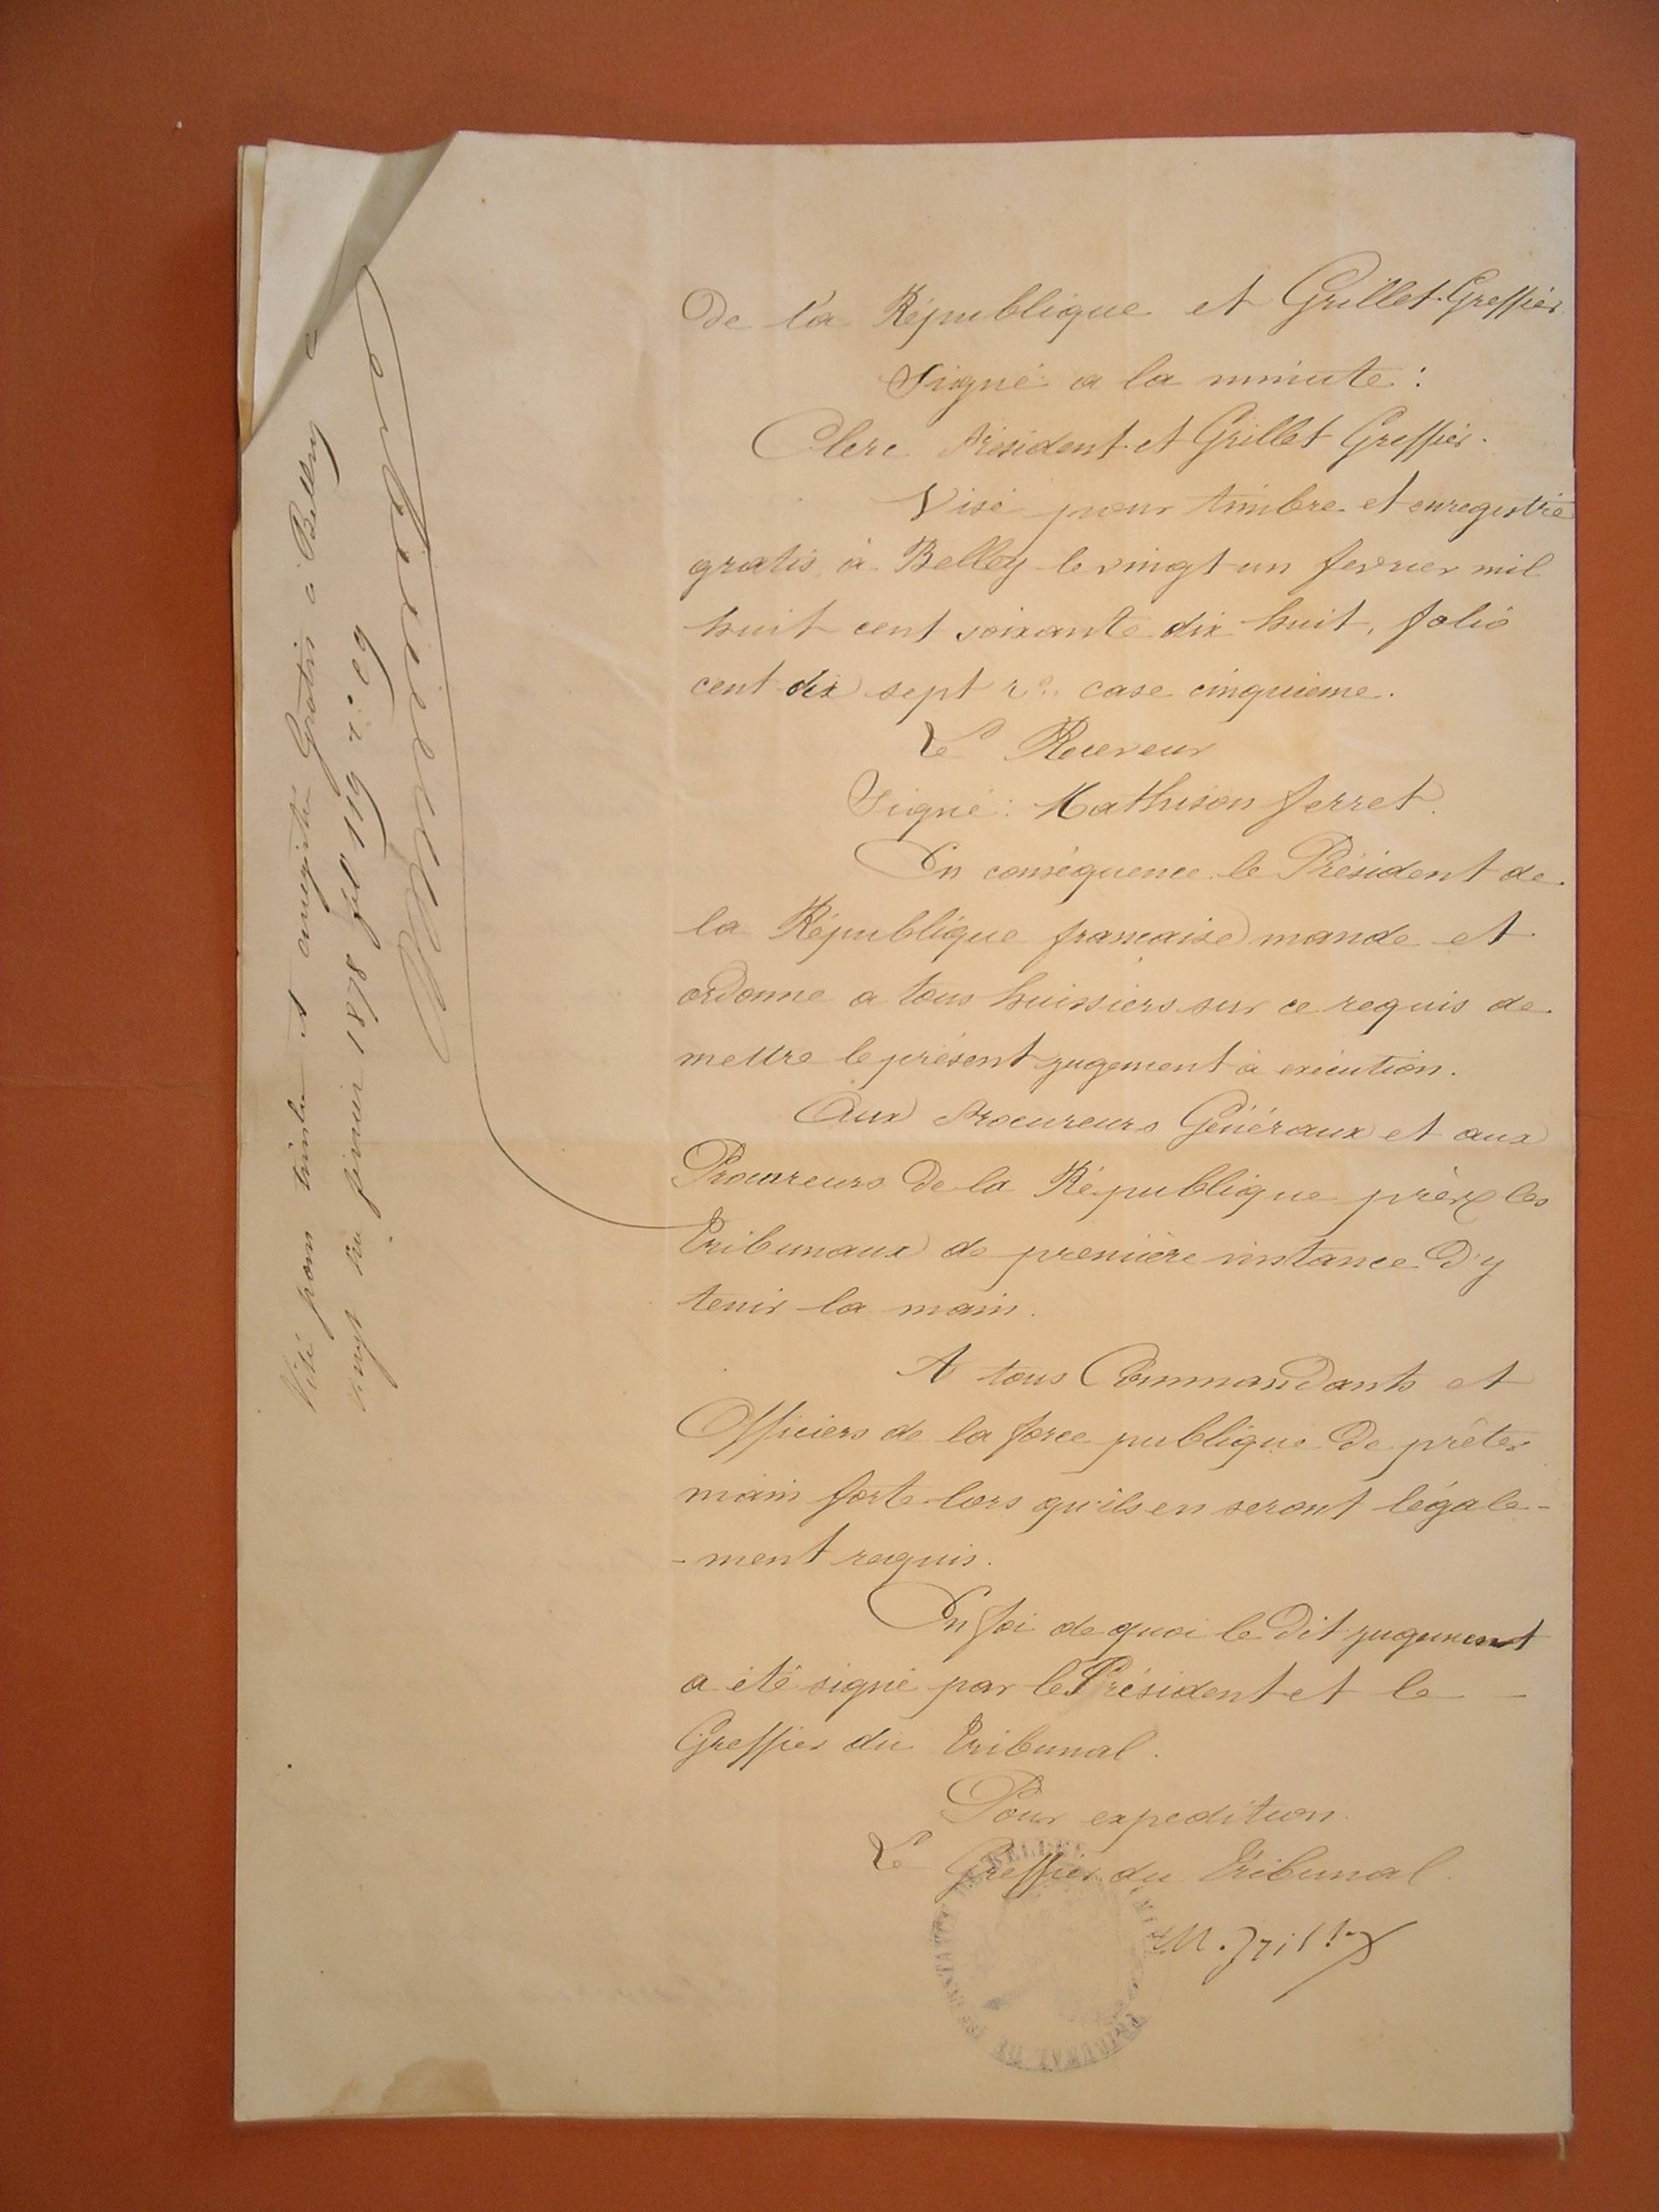 De la République et Grillet Greffier
Signé a la minute :
Clerc Président et Grillet Greffier.
Visé pour timbre et enregistré
gratis, à Belley le vingt un fevrier mil
huit cent soixante dix huit, folio
cent dix sept r° case cinquieme.
Le Receveur
Signé : Mathison ferret.
En conséquence le Président de
la République française mande et
ordonne a tous huissiers sur ce requis de
mettre le présent jugement à exécution.
Aux Procureurs Généraux et aux
Procureurs de la République près les
Tribunaux de première instance D'y
tenir la main.
A tous Commandants et
Officiers de la force publique De prêter
main forte lors qu'ils en seront légale-
-ment requis.
En foi de quoi le Dit jugement
a été signé par le Président et le -
Greffier du Tribunal.
Pour expedition.
Le Greffier du Tribunal.
M. Grillet
TRIBUNAL DE
Visé pour timbre et enregistré Gratis à Belley
vingt un février 1878 fol 119 r° c 9